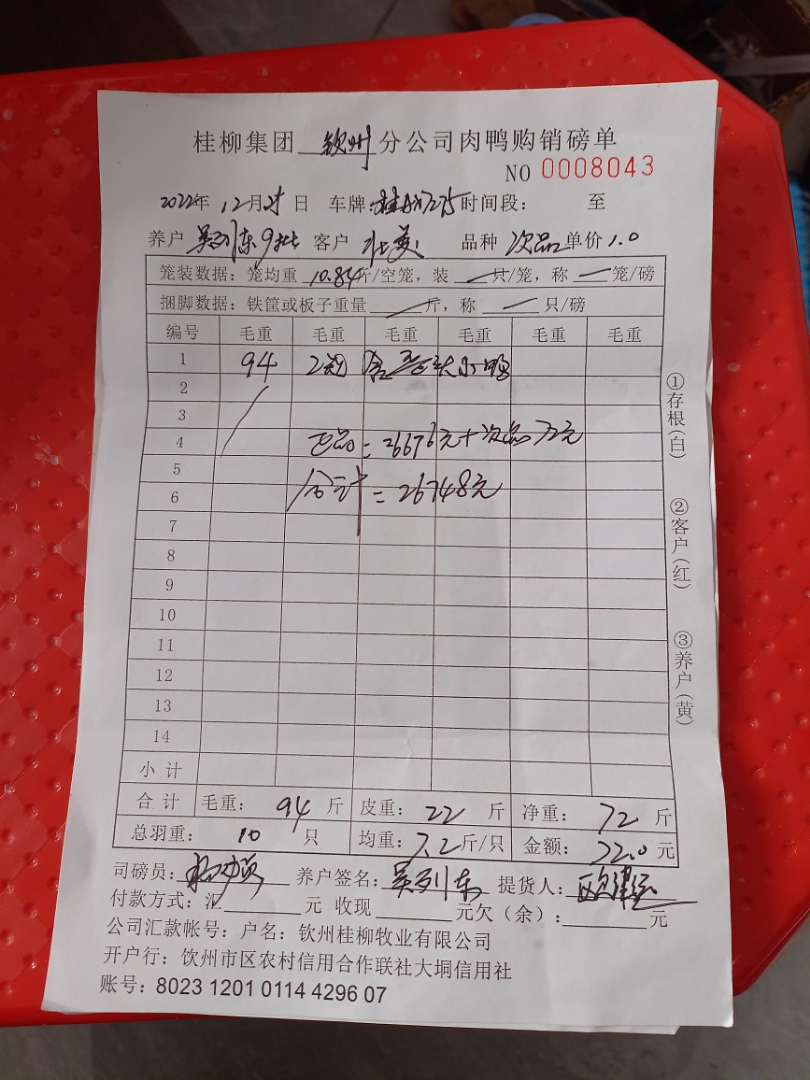 桂柳集团 钦州 分公司肉鸭购销磅单
NO 0008043
2022年 12月25日 车牌 时间段： 至
养户 吴列东9批 客户 品种 次品 单价 1.0
笼装数据：笼均重 10.84斤/空笼，装 只/笼，称 笼/磅
捆脚数据：铁筐或板子重量 斤，称 只/磅
编号 毛重 毛重 毛重 毛重 毛重 毛重
1 94 2笼 小鸭
2
3
4 正品=26676元+次品72元
5
6 合计=26748元
7
8
9
10
11
12
13
14
小计
合计 毛重： 94 斤 皮重： 22 斤 净重： 72 斤
总羽重： 10 只 均重： 7.2斤/只 金额： 72.0 元
司磅员： 养户签名： 吴列东 提货人：
付款方式：汇 元 收现 元欠（余）： 元
公司汇款帐号：户名：钦州桂柳牧业有限公司
开户行：钦州市区农村信用合作联社大垌信用社
账号：8023 1201 0114 4296 07
①存根（白）
②客户（红）
③养户（黄）